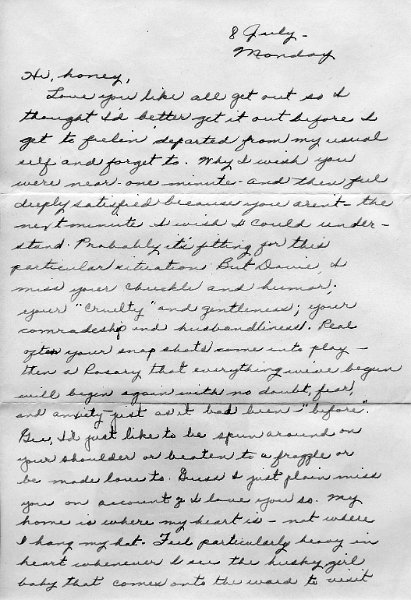 8 July -
Monday
Hi, honey,
Love you like all get out so I
thought I'd better get it out before I
get to feelin' departed from my usual
self and forget to. Why I wish you
were near one minute and then feel
deeply satisfied because you aren't - the
next minute I wish I could under-
stand. Probably it's fitting for this
particular situation. But Davie, I
miss your chuckle and humor;
your "cruelty" and gentleness; your
comradeship and husbandliness. Real
often your snap shots come into play -
then a Rosary that everything we've begun
will begin again with no doubt, fear,
and anxiety just as it had been "before".
Gee, I'd just like to be spun around on
your shoulder or beaten to a frazzle or
be made love to. Guess I just plain miss
you on account of I love you so. My
home is where my heart is - not where
I hang my hat. Feel particularly heavy in
heart whenever I see the husky girl
baby that comes onto the ward to visit